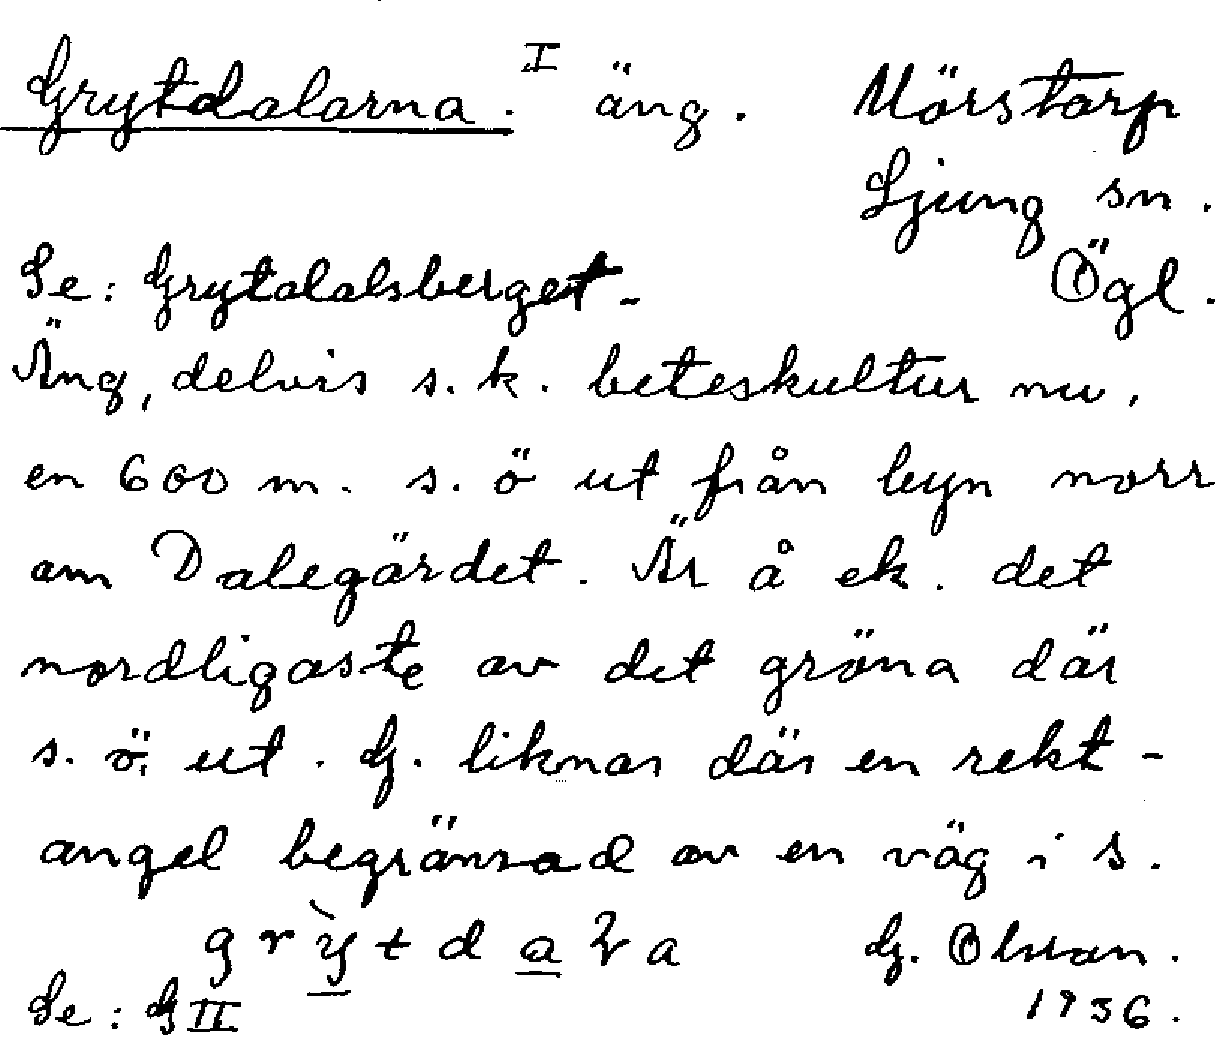 Grytdalarna. I äng. Mörstorp
Ljung sn.
Se: Grytdalsberget. Ögl.
Äng, delvis s.k. beteskultur nu,
en 600 m. s.ö ut från byn norr
om Dalegärdet. Är å ek. det
nordligaste av det gröna där
s.ö. ut. G. liknar där en rekt-
angel begränsad av en väg i s.
G. Olsson.
Se: G II 1936.